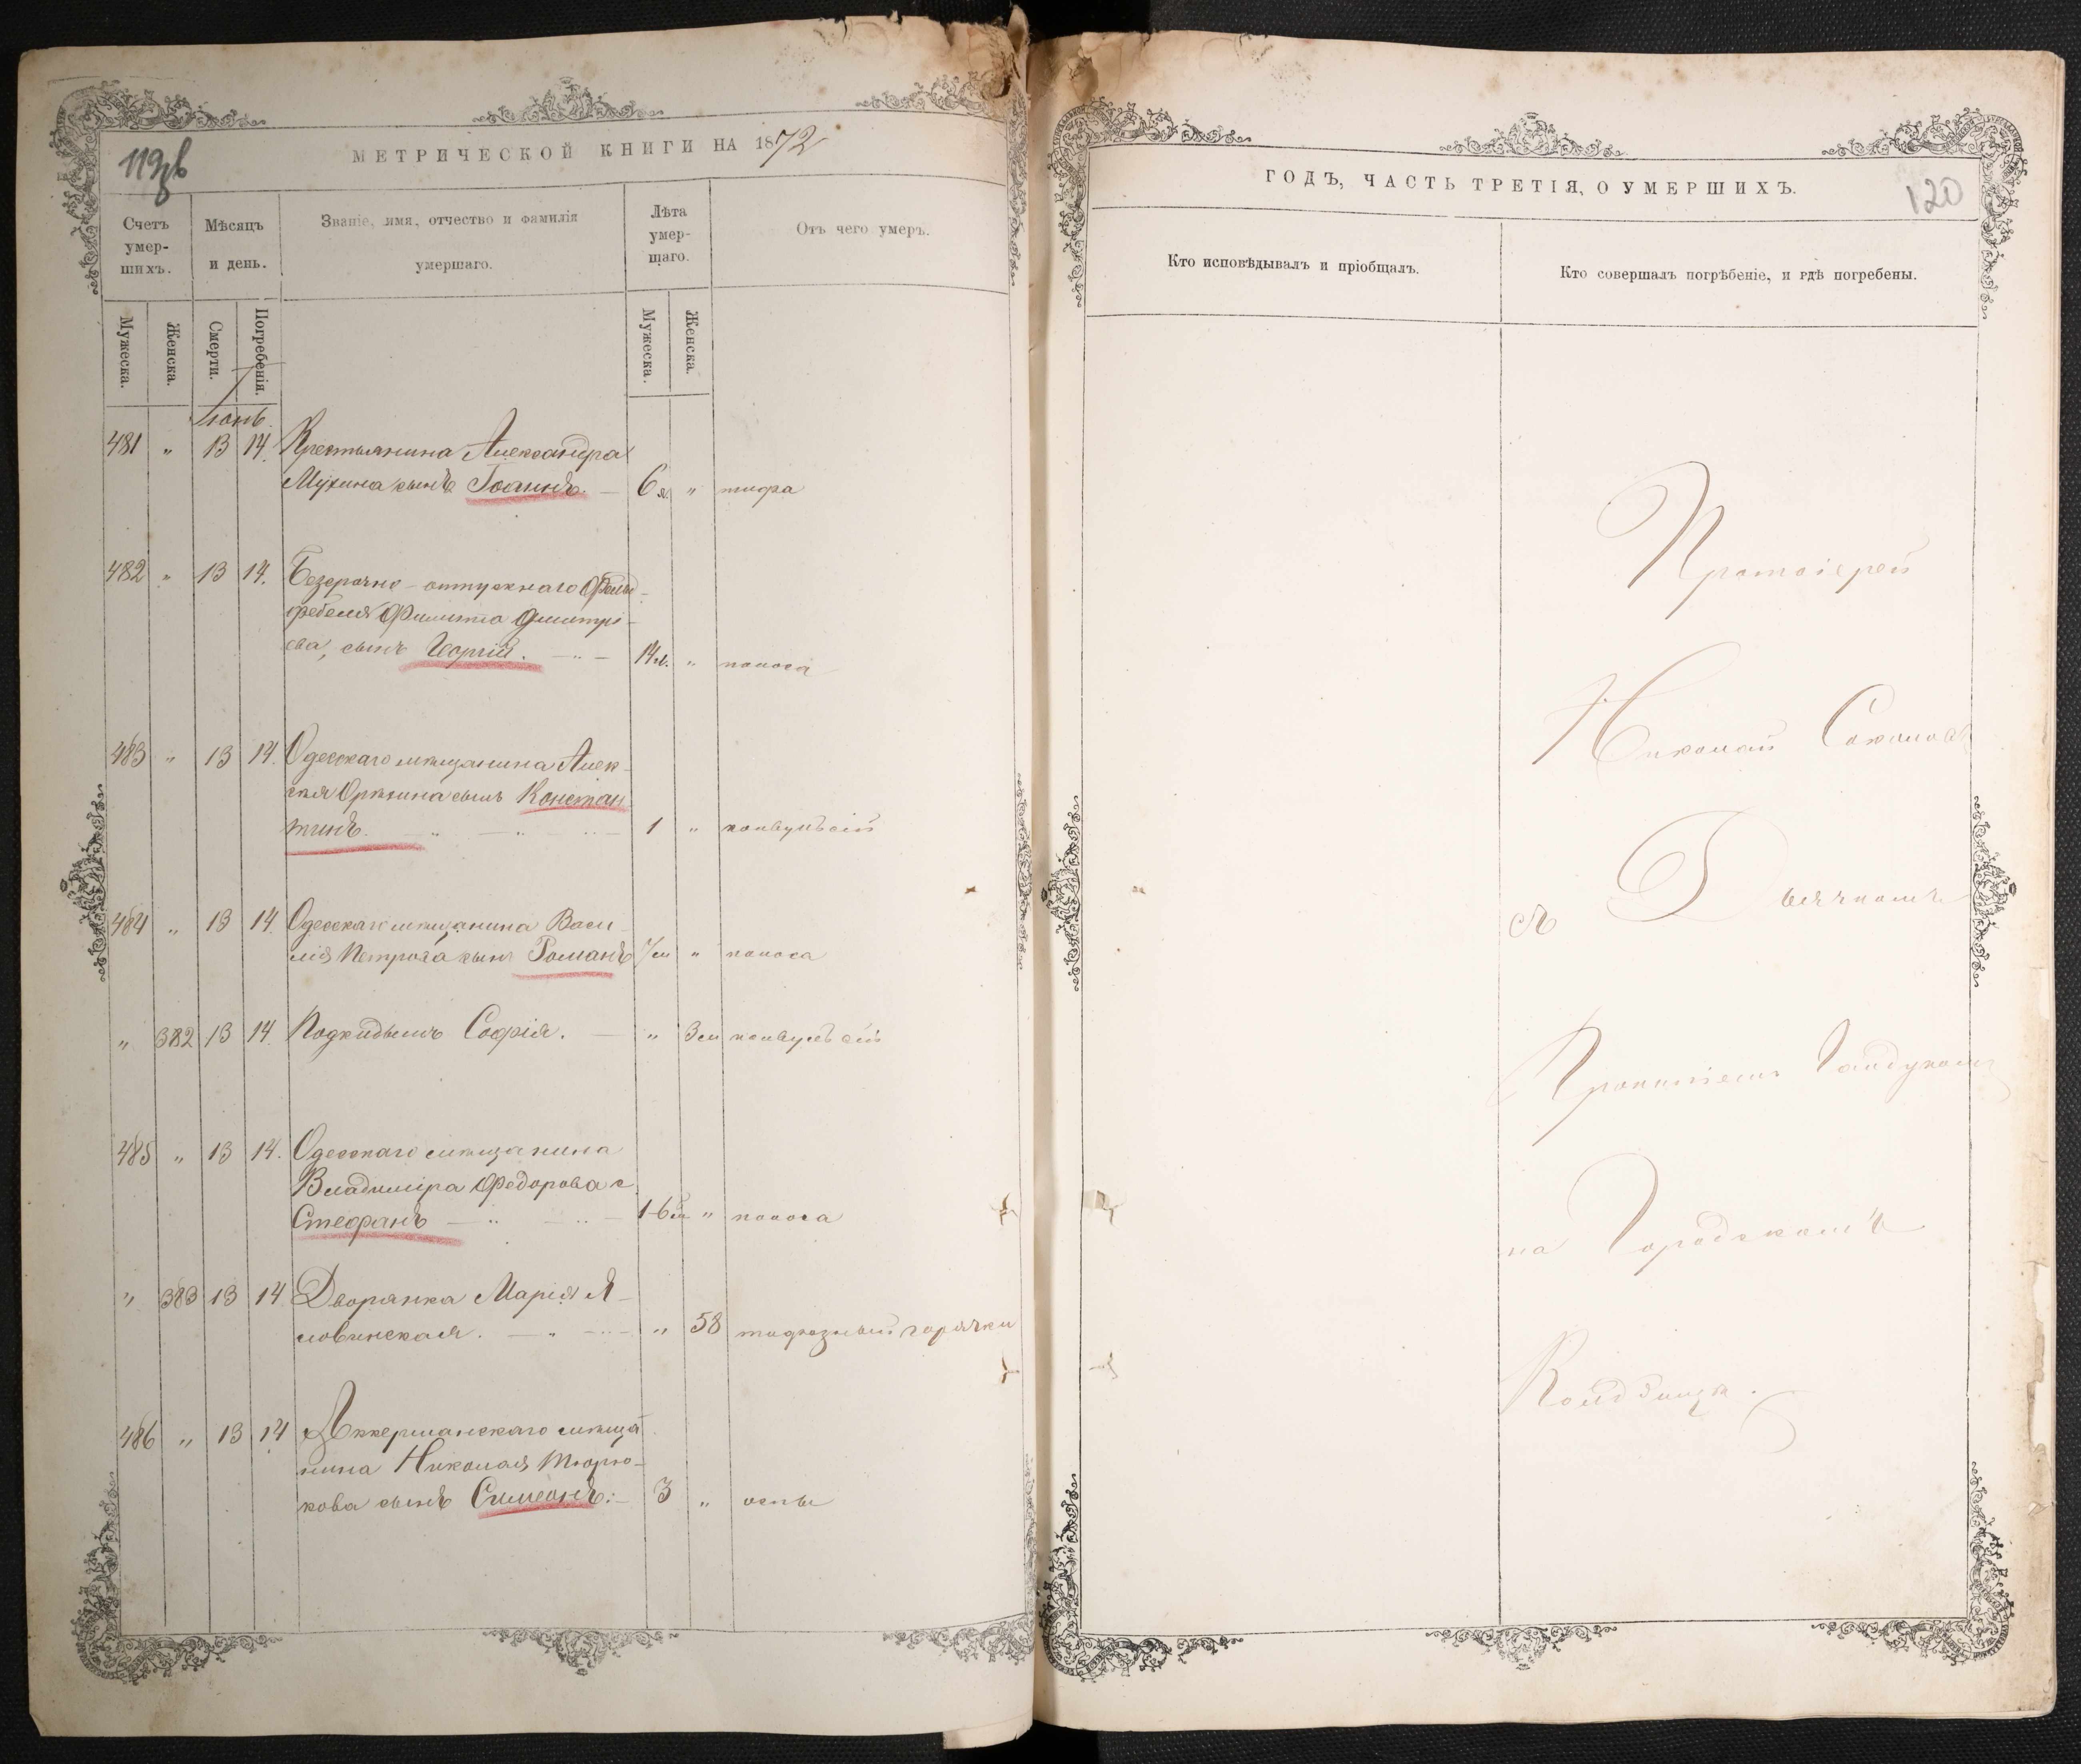 119об
МЕТРИЧЕСКОЙ КНИГИ НА 1872
Счетъ умер-шихъ.
Мѣсяцъ и день.
Званіе, имя, отчество и фамилія умершаго.
Лѣта умер-шаго.
Отъ чего умеръ.
Мужеска.
Женска.
Смерти.
Погребенія.
Мужеска.
Женска.
Іюнь.
481 „ 13 14. Крестьянина Александра
Мухина сынъ Іоаннъ. — 6 м. „ тифа
482 „ 13 14. Безсрочно-отпускнаго Фельд-
фебеля Филиппа Дмитрі-
ева, сынъ Георгій. — 14 м. „ поноса
483 „ 13 14. Одесскаго мѣщанина Алек-
сѣя сынъ Констан
тинъ. — 1 „ конвульсій
484 „ 13 14. Одесскаго мѣщанина Васи-
лія Петрова сынъ Романъ 7 м „ поноса
„ 382 13 14. Подкидышъ Софія. — „ 3 м конвульсій
485 „ 13 14. Одесскаго мѣщанина
Владиміра Федорова с.
Стефанъ — 1-6 м „ поноса
„ 383 13 14 Дворянка Марія Я-
ловинская. — „ 58 горячки
486 „ 13 14 Аккерманскаго мѣща
нина Николая Тюрю-
кова сынъ Симеонъ: — 3 „ оспы
ГОДЪ, ЧАСТЬ ТРЕТІЯ, О УМЕРШИХЪ.
120
Кто исповѣдывалъ и пріобщалъ.
Кто совершалъ погребеніе, и гдѣ погребены.
Протоіерей
Николай Соколовъ
съ Дьячкомъ
Гайдукомъ
на Городскомъ
Кладбищѣ.